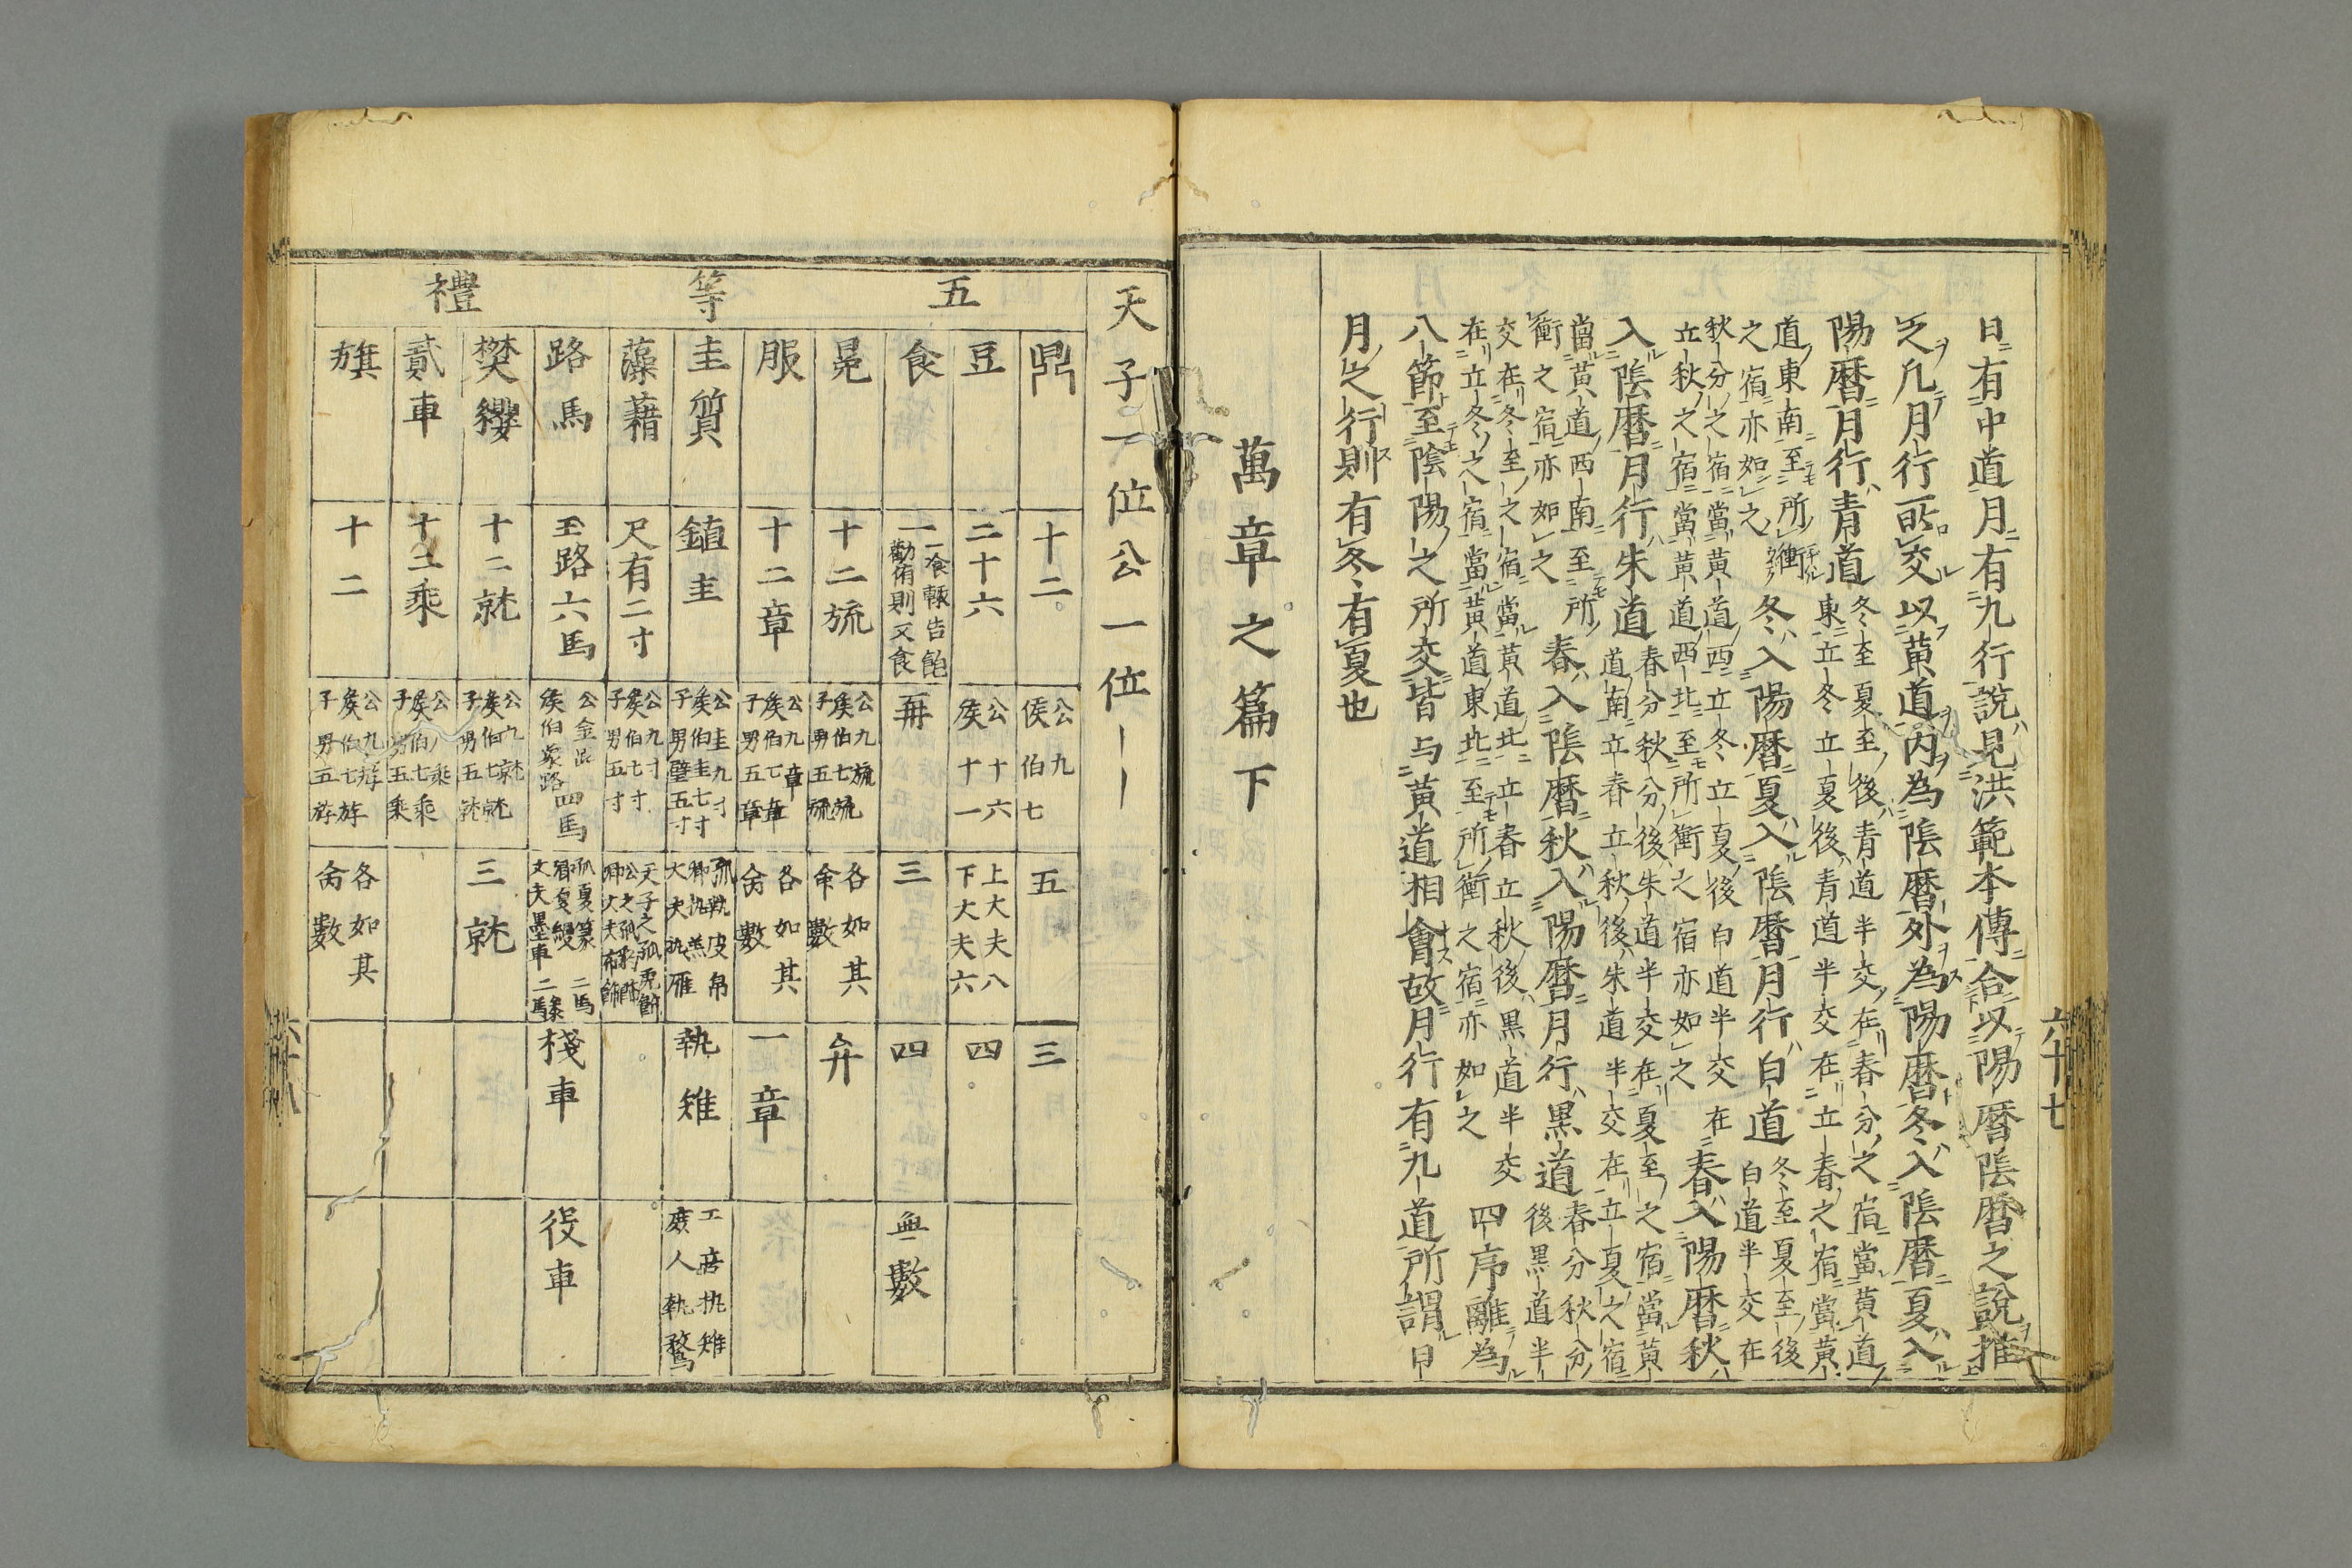 日有中道月有九行說見洪範本傳合以陽曆陰曆之說推
之凡月行所交以黃道内為陰曆外為陽曆冬入陰曆夏入
陽曆月行青道
冬至夏至後青道半交在春分之宿當黃道
東立冬立夏後青道半交在立春之宿當黃
道東南至所衝
之宿亦如之
冬入陽曆夏入陰曆月行白道
冬至夏至後
白道半交在
秋分之宿當黃道西立冬立夏後白道半交在
立秋之宿當黃道西北至所衝之宿亦如之
春入陽曆秋
入陰曆月行朱道
春分秋分後朱道半交在夏至之宿當黃
道南立春立秋後朱道半交在立夏之宿
當黃道西南至所
衝之宿亦如之
春入陰曆秋入陽曆月行黑道
春分秋分
後黑道半
交在冬至之宿當黃道北立春立秋後黑道半交
在立冬之宿當黃道東北至所衝之宿亦如之
四序離為
八節至陰陽之所交皆与黃道相會故月行有九道所謂日
月之行則有冬有夏也
萬章之篇下
六十七
天子一位公一位——
五等禮
鼎 十二 公九 侯伯七 五 三
豆 二十六 公十六 侯十一 上大夫八 下大夫六 四
食 一飡輙告飽 一勸侑則又食 再 三 四 無數
冕 十二旒 公九旒 侯伯七旒 子男五旒 各如其命數 弁
服 十二章 公九章 侯伯七章 子男五章 各如其命數 一章
圭質 鎮圭 公圭九寸 侯伯圭七寸 子男璧五寸 孤執皮帛 卿執羔 大夫執雁 執雉 工商执雉 庶人執鶩
藻藉 尺有二寸 公九寸 侯伯七寸 子男五寸 天子之孤 公之孤 卿大夫布飾
路馬 玉路六馬 公金路 侯伯象路 四馬 孤夏篆 卿夏縵 大夫墨車 二馬 棧車 役車
樊纓 十二就 公九就 侯伯七就 子男五就 三就
貳車 十二乘 公九乘 侯伯七乘 子男五乘
旗 十二 公九斿 侯伯七斿 子男五斿 各如其命數
六十八